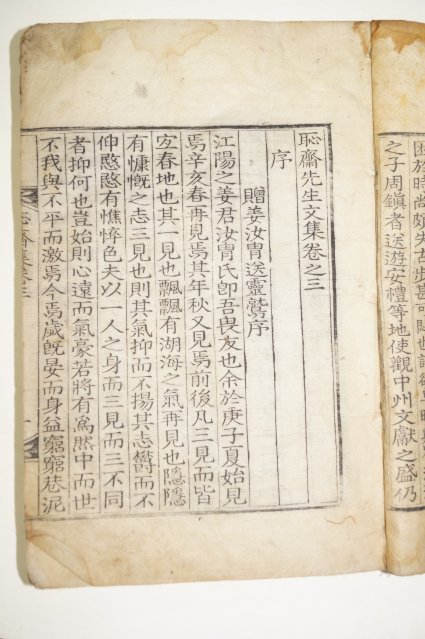 困於時尚頗失古步甚可
之子周鎮者送遊安禮等地使觀中州文獻之盛仍
恥齋先生文集卷之三
序
贈姜汝胄送靈鷲序
江陽之姜君汝胄氏卽吾畏友也余於庚子夏始見
焉辛亥春再見焉其年秋又見焉前後凡三見而皆
宜春地也其一見也飄飄有湖海之氣再見也隱隱
有慷慨之志三見也則其氣抑而不揚其志欝而不
伸愍愍有憔悴色夫以一人之身而三見而三不同
者抑何也豈始則心遠而氣豪若將有爲然中而世
不我與不平而激焉今焉歲旣晏而身益窮窮巷泥
恥齋集卷三
一